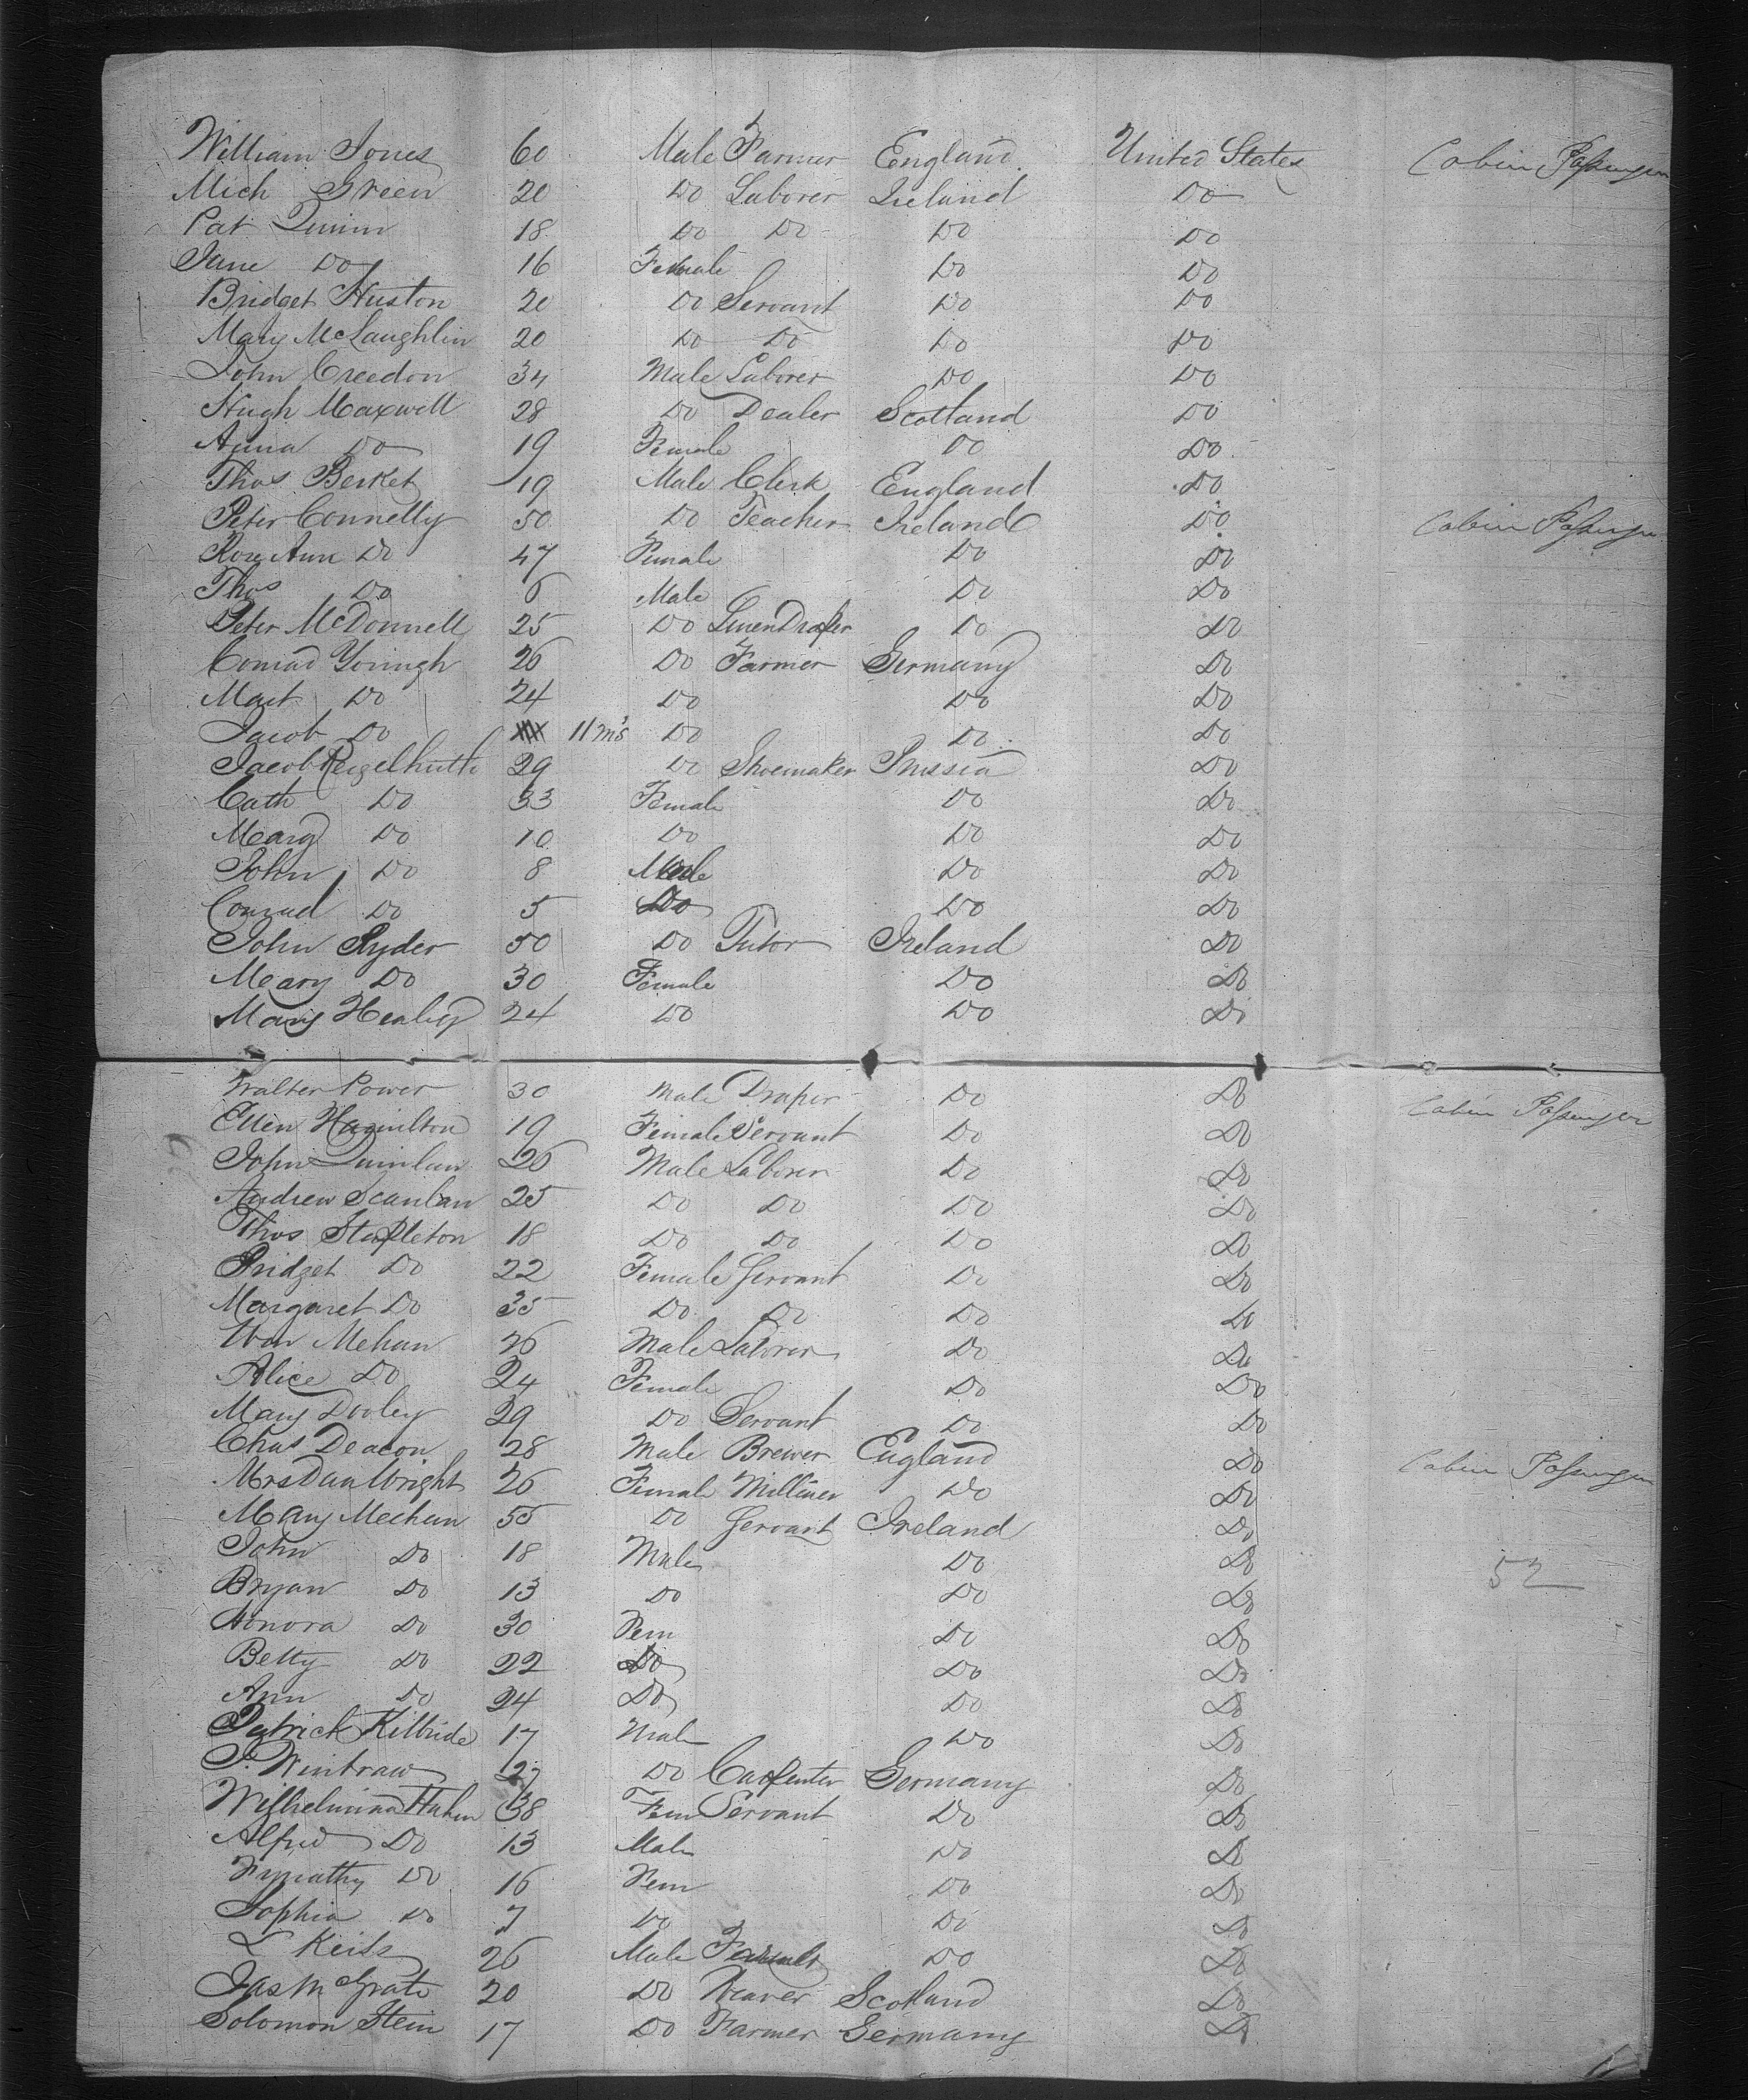 William Jones 60 Male Farmer England United States Cabin Passenger
Mich Green 20 Do Laborer Ireland Do
Pat Quinn 18 Do Do Do Do
Jane Do 16 Female Do Do
Bridget Huston 20 Do Servant Do Do
Mary McLaughlin 20 Do Do Do Do
John Creedon 34 Male Laborer Do Do
Hugh Maxwell 28 Do Dealer Scotland Do
Anna Do 19 Female Do Do
Thos Berket 19 Male Clerk England Do
Peter Connelly 50 Do Teacher Ireland Do Cabin Passenger
Rose Ann Do 47 Female Do Do
Thos Do 6 Male Do Do
Peter McDonnell 25 Do Linen Draper Do Do
Conrad 26 Do Farmer Germany Do
Mart Do 24 Do Do Do
Jacob Do 11 ms Do Do Do
Jacob 29 Do Shoemaker Prussia Do
Cath Do 33 Female Do Do
Marg Do 10 Do Do Do
John Do 8 Male Do Do
Conrad Do 5 Do Do Do
John Ryder 50 Do Tutor Ireland Do
Mary Do 30 Female Do Do
Mary Healy 24 Do Do Do
Walter Power 30 Male Draper Do Do Cabin Passenger
Ellen Hamilton 19 Female Servant Do Do
John Quinlan 26 Male Laborer Do Do
Andrew Scanlan 25 Do Do Do Do
Thos Stapleton 18 Do Do Do Do
Bridget Do 22 Female Servant Do Do
Margaret Do 35 Do Do Do Do
Wm Mehan 26 Male Laborer Do Do
Alice Do 24 Female Do Do
Mary Dooley 29 Do Servant Do Do
Chas Deacon 28 Male Brewer England Do
Mrs Dan Wright 26 Female Milliner Do Do Cabin Passenger
Mary Mechan 55 Do Servant Ireland Do
John Do 18 Male Do Do
Bryan Do 13 Do Do Do 52
Honora Do 30 Fem Do Do
Betty Do 22 Do Do Do
Ann Do 24 Do Do Do
Patrick Kilbride 17 Male Do Do
27 Do Carpenter Germany Do
Wilhelmina Hahn 38 Fem Servant Do Do
Alfred Do 13 Male Do Do
Do 16 Fem Do Do
Sophia Do 7 Do Do Do
L Keitz 26 Male Farmer Do Do
Jas McGrath 20 Do Weaver Scotland Do
Solomon Stein 17 Do Farmer Germany Do